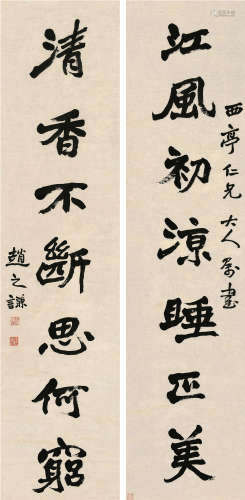 西亭仁兄大人属書
江風初涼睡正美
清香不斷思何窮
趙之謙